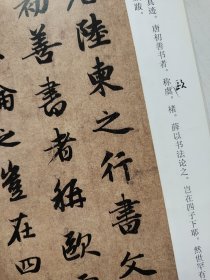 段
真迹。唐初善书者，称虞、褚、薛以书法论之，岂在四子下耶。然世罕有
跋。
陸柬之行書文
初善書者稱歐
論之豈在四